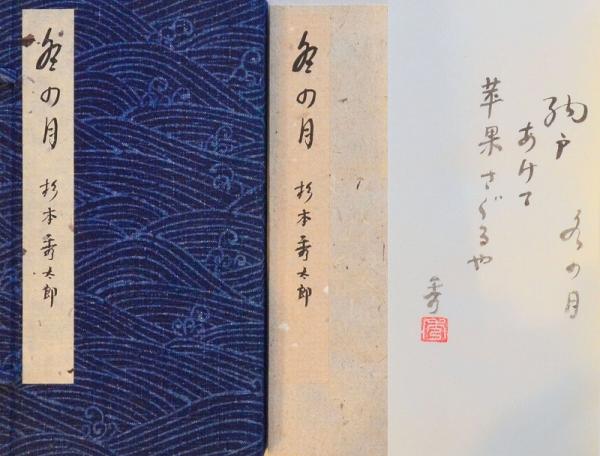 冬の月
杉本秀太郎
冬の月
杉本秀太郎
網戸
あけて
苹果さぐるや
冬の月
秀